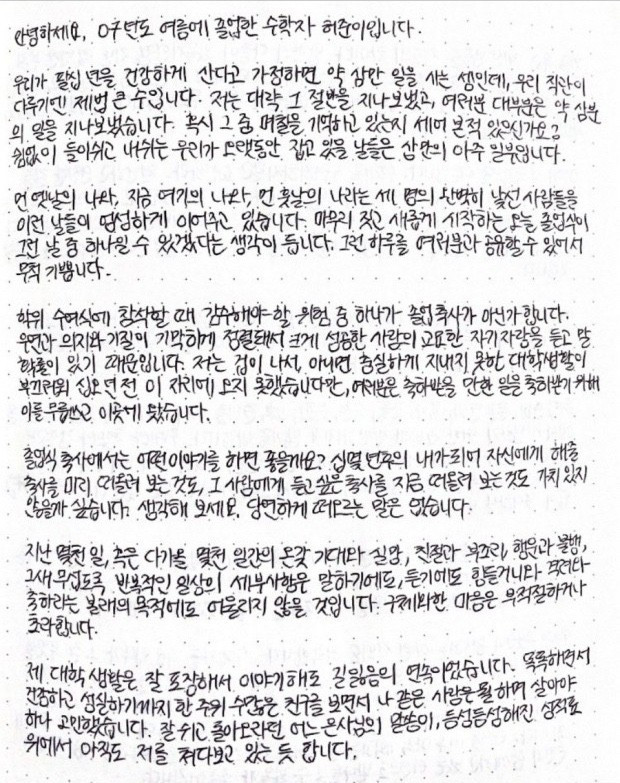 안녕하세요, 07년도 여름에 졸업한 수학자 허준이입니다.
우리가 팔십 년을 건강하게 산다고 가정하면 약 삼만 일을 사는 셈인데, 우리 직관이
다루기엔 제법 큰 수입니다. 저는 대략 그 절반을 지나보냈고, 여러분 대부분은 약 삼분
의 일을 지나보냈습니다. 혹시 그 중 며칠을 기억하고 있는지 세어 본적 있으신가요?
쉼없이 들이쉬고 내쉬는 우리가 오랫동안 잡고 있을 날들은 삼만의 아주 일부입니다.
먼 옛날의 나와, 지금 여기의 나와, 먼 훗날의 나라는 세 명의 완벽히 낯선 사람들을
이런 날들이 엉성하게 이어주고 있습니다. 마무리 짓고 새롭게 시작하는 오늘 졸업식이
그런 날 중 하나일 수 있겠다는 생각이 듭니다. 그런 하루를 여러분과 공유할 수 있어서
무척 기쁩니다.
학위 수여식에 참석할 때 감수해야 할 위험 중 하나가 졸업 축사가 아닌가 합니다.
우연과 의지와 기질이 기막히게 정렬돼서 크게 성공한 사람의 교묘한 자기자랑을 듣고 말
확률이 있기 때문입니다. 저는 겁이 나서, 아니면 충실하게 지내지 못한 대학생활이
부끄러워 십오 년 전 이 자리에 오지 못했습니다만, 여러분은 축하받을 만한 일을 축하받기 위해
이를 무릅쓰고 이곳에 왔습니다.
졸업식 축사에서는 어떤 이야기를 하면 좋을까요? 십몇 년후의 내가 되어 자신에게 해줄
축사를 미리 떠올려 보는 것도, 그 사람에게 듣고 싶은 축사를 지금 떠올려 보는 것도 가치 있지
않을까 싶습니다. 생각해 보세요. 당연하게 떠오르는 말은 없습니다.
지난 몇천 일, 혹은 다가올 몇천 일간의 온갖 기대와 실망, 친절과 부조리, 행운과 불행,
그새 무섭도록 반복적인 일상의 세부사항은 말하기에도, 듣기에도 힘들거니와 격려와
축하라는 본래의 목적에도 어울리지 않을 것입니다. 구체화한 마음은 부적절하거나
초라합니다.
제 대학 생활은 잘 포장해서 이야기해도 길잃음의 연속이었습니다. 똑똑하면서
건강하고 성실하기까지 한 주위 수많은 친구를 보면서 나 같은 사람은 뭘 하며 살아야
하나 고민했습니다. 잘 쉬고 돌아오라던 어느 은사님의 말씀이, 듬성듬성해진 성적표
위에서 아직도 저를 쳐다보고 있는 듯 합니다.